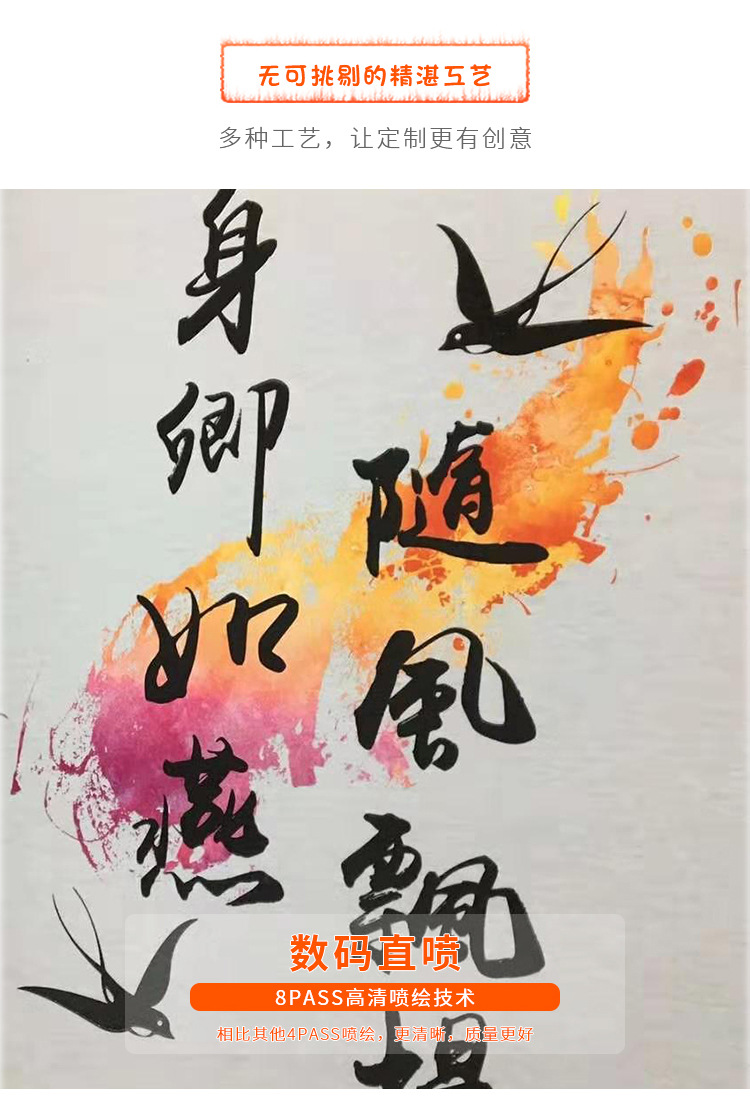 无可挑剔的精湛工艺
多种工艺，让定制更有创意
随風飄
身卿如燕
数码直喷
8PASS高清喷绘技术
相比其他4PASS喷绘，更清晰，质量更好